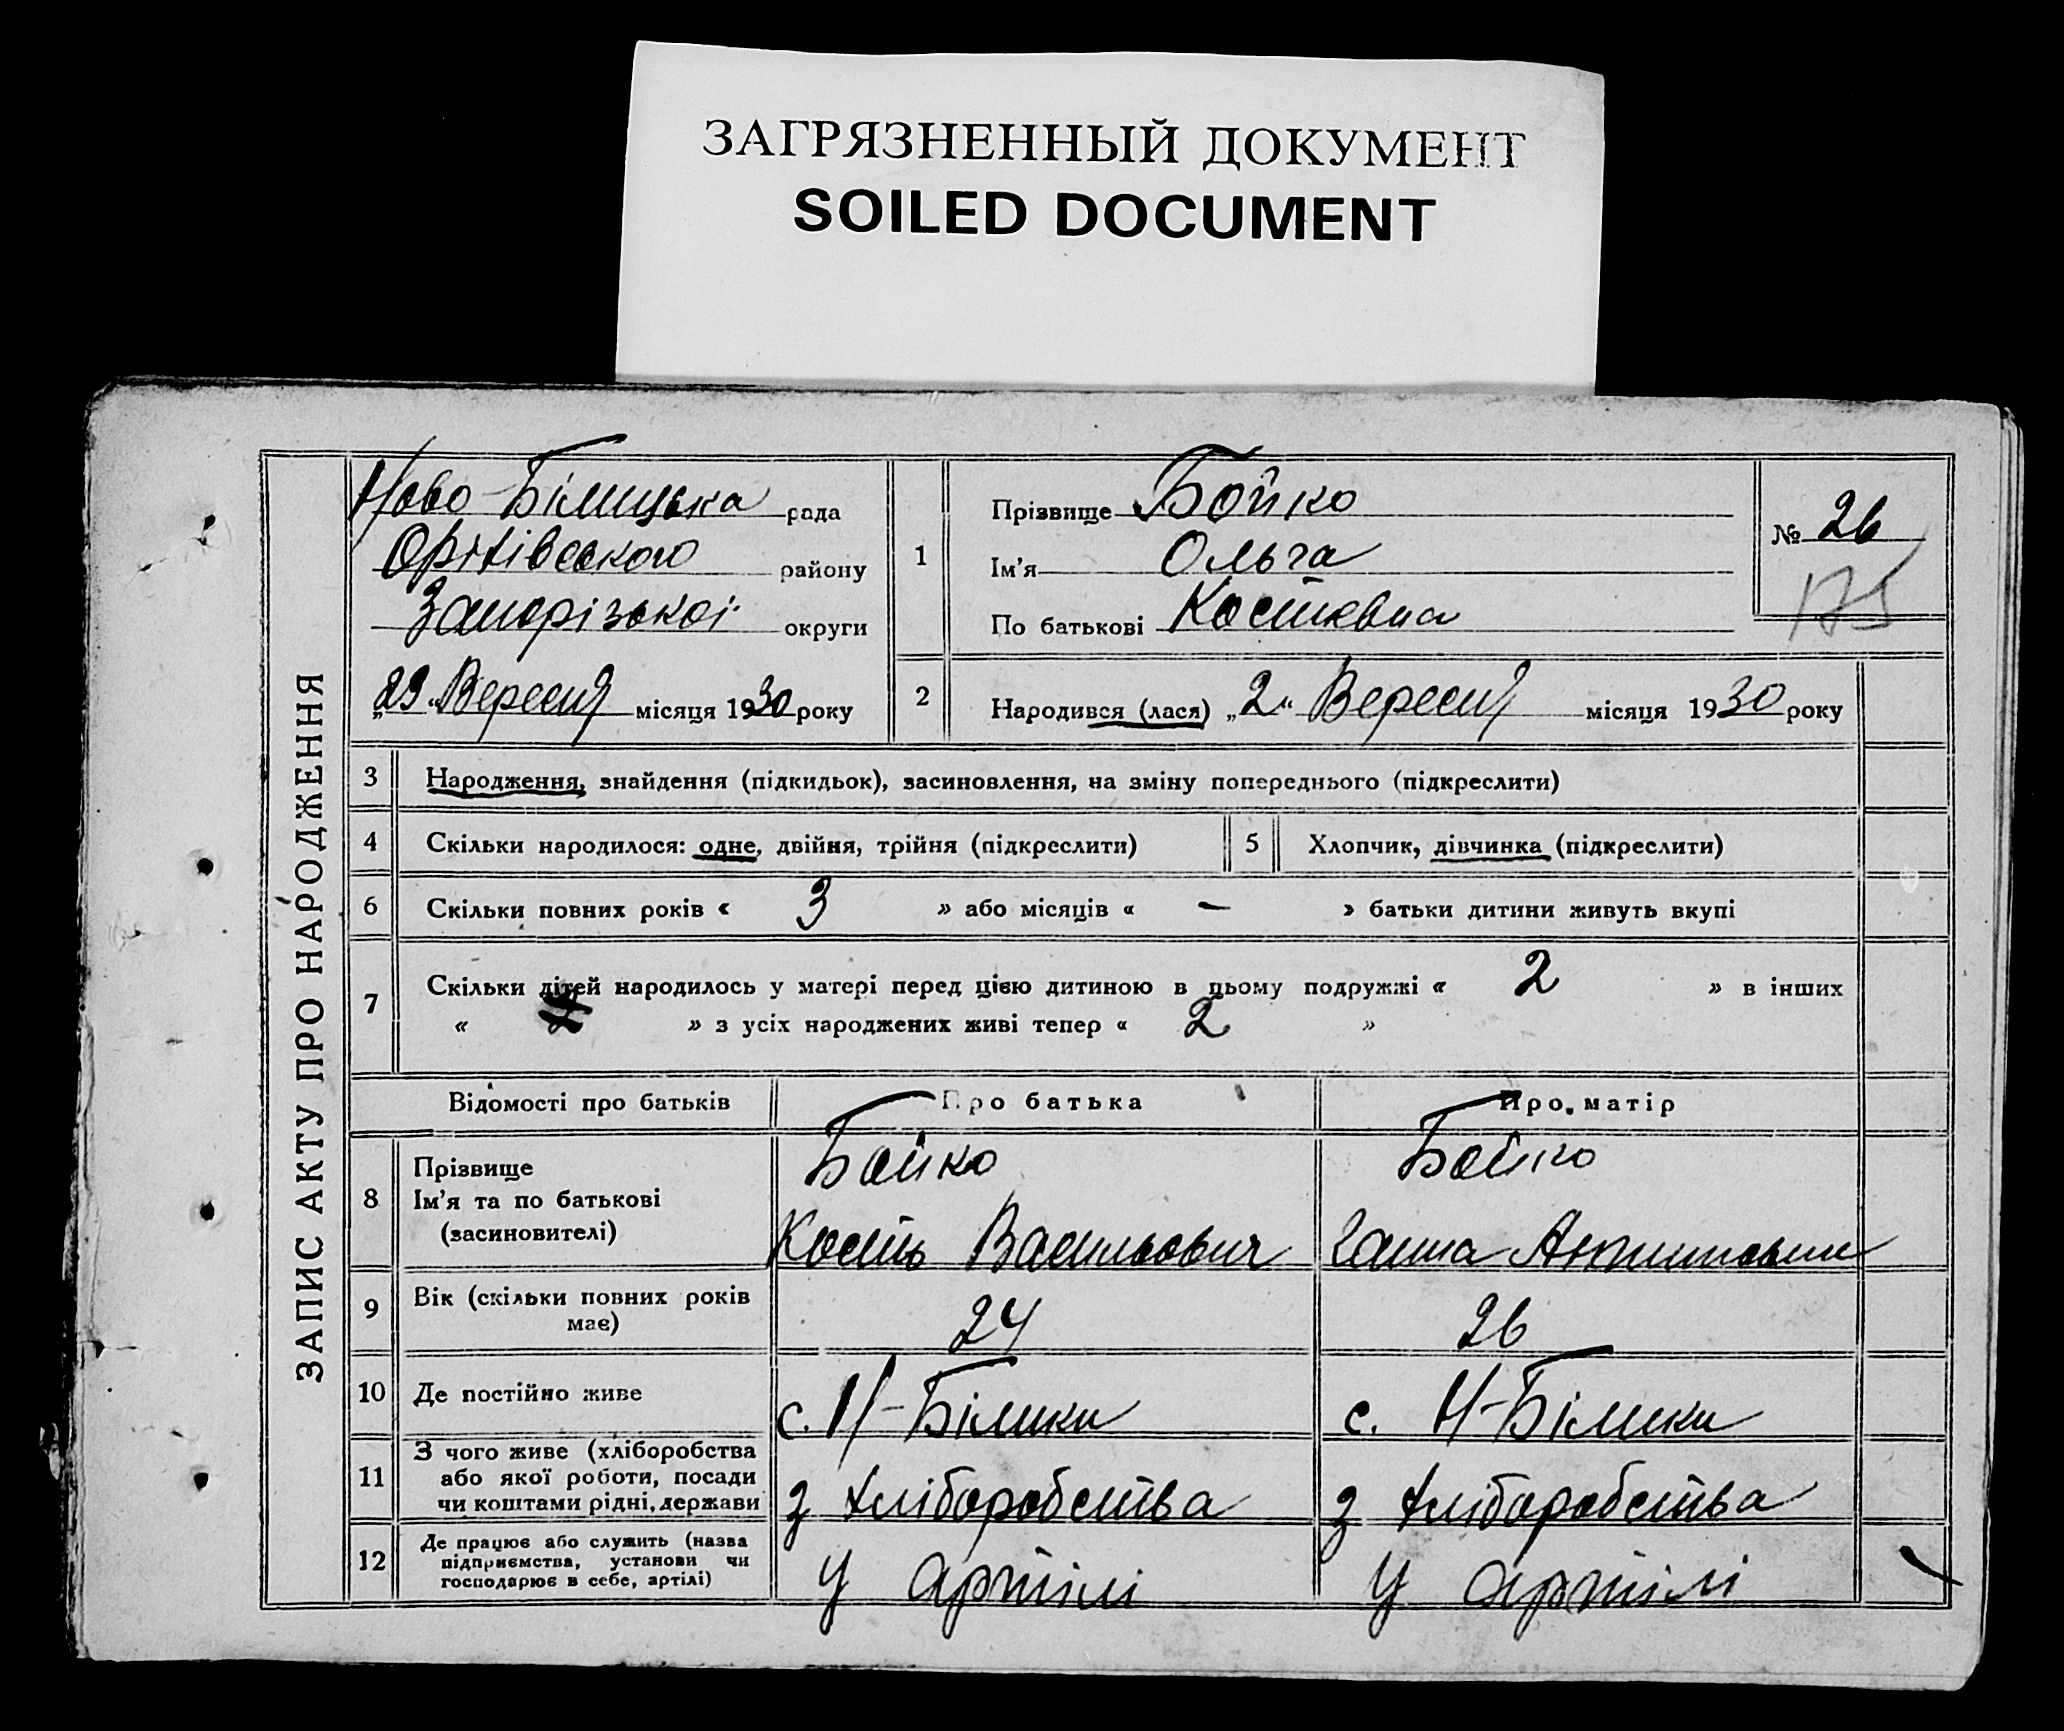 ЗАГРЯЗНЕННЫЙ ДОКУМЕНТ
SOILED DOCUMENT
ЗАПИС АКТУ ПРО НАРОДЖЕННЯ
Ново-Білицька рада
Оріхівського району
Запорізької округи
„29“ Вересня місяця 1930 року
1
Прізвище Бойко
Ім'я Ольга
По батькові Костевна
№ 26
175
2 Народився (лася) „2“ Вересня місяця 1930 року
3 Народження, знайдення (підкидьок), засиновлення, на зміну попереднього (підкреслити)
4 Скільки народилося: одне, двійня, трійня (підкреслити) 5 Хлопчик, дівчинка (підкреслити)
6 Скільки повних років « 3 » або місяців « — » батьки дитини живуть вкупі
7 Скільки дітей народилось у матері перед цією дитиною в цьому подружжі « 2 » в інших
« » з усіх народжених живі тепер « 2 »
Відомості про батьків Про батька Про матір
8 Прізвище
Ім'я та по батькові
(засиновителі)
Бойко
Кость Васильович
Бойко
Ганна
9 Вік (скільки повних років
має)
24
26
10 Де постійно живе с. Н-Білики с. Н-Білики
11 З чого живе (хліборобства
або якої роботи, посади
чи коштами рідні, держави
з хліборобства
з хліборобства
12 Де працює або служить (назва
підприємства, установи чи
господарює в себе, артілі)
у артілі
у артілі